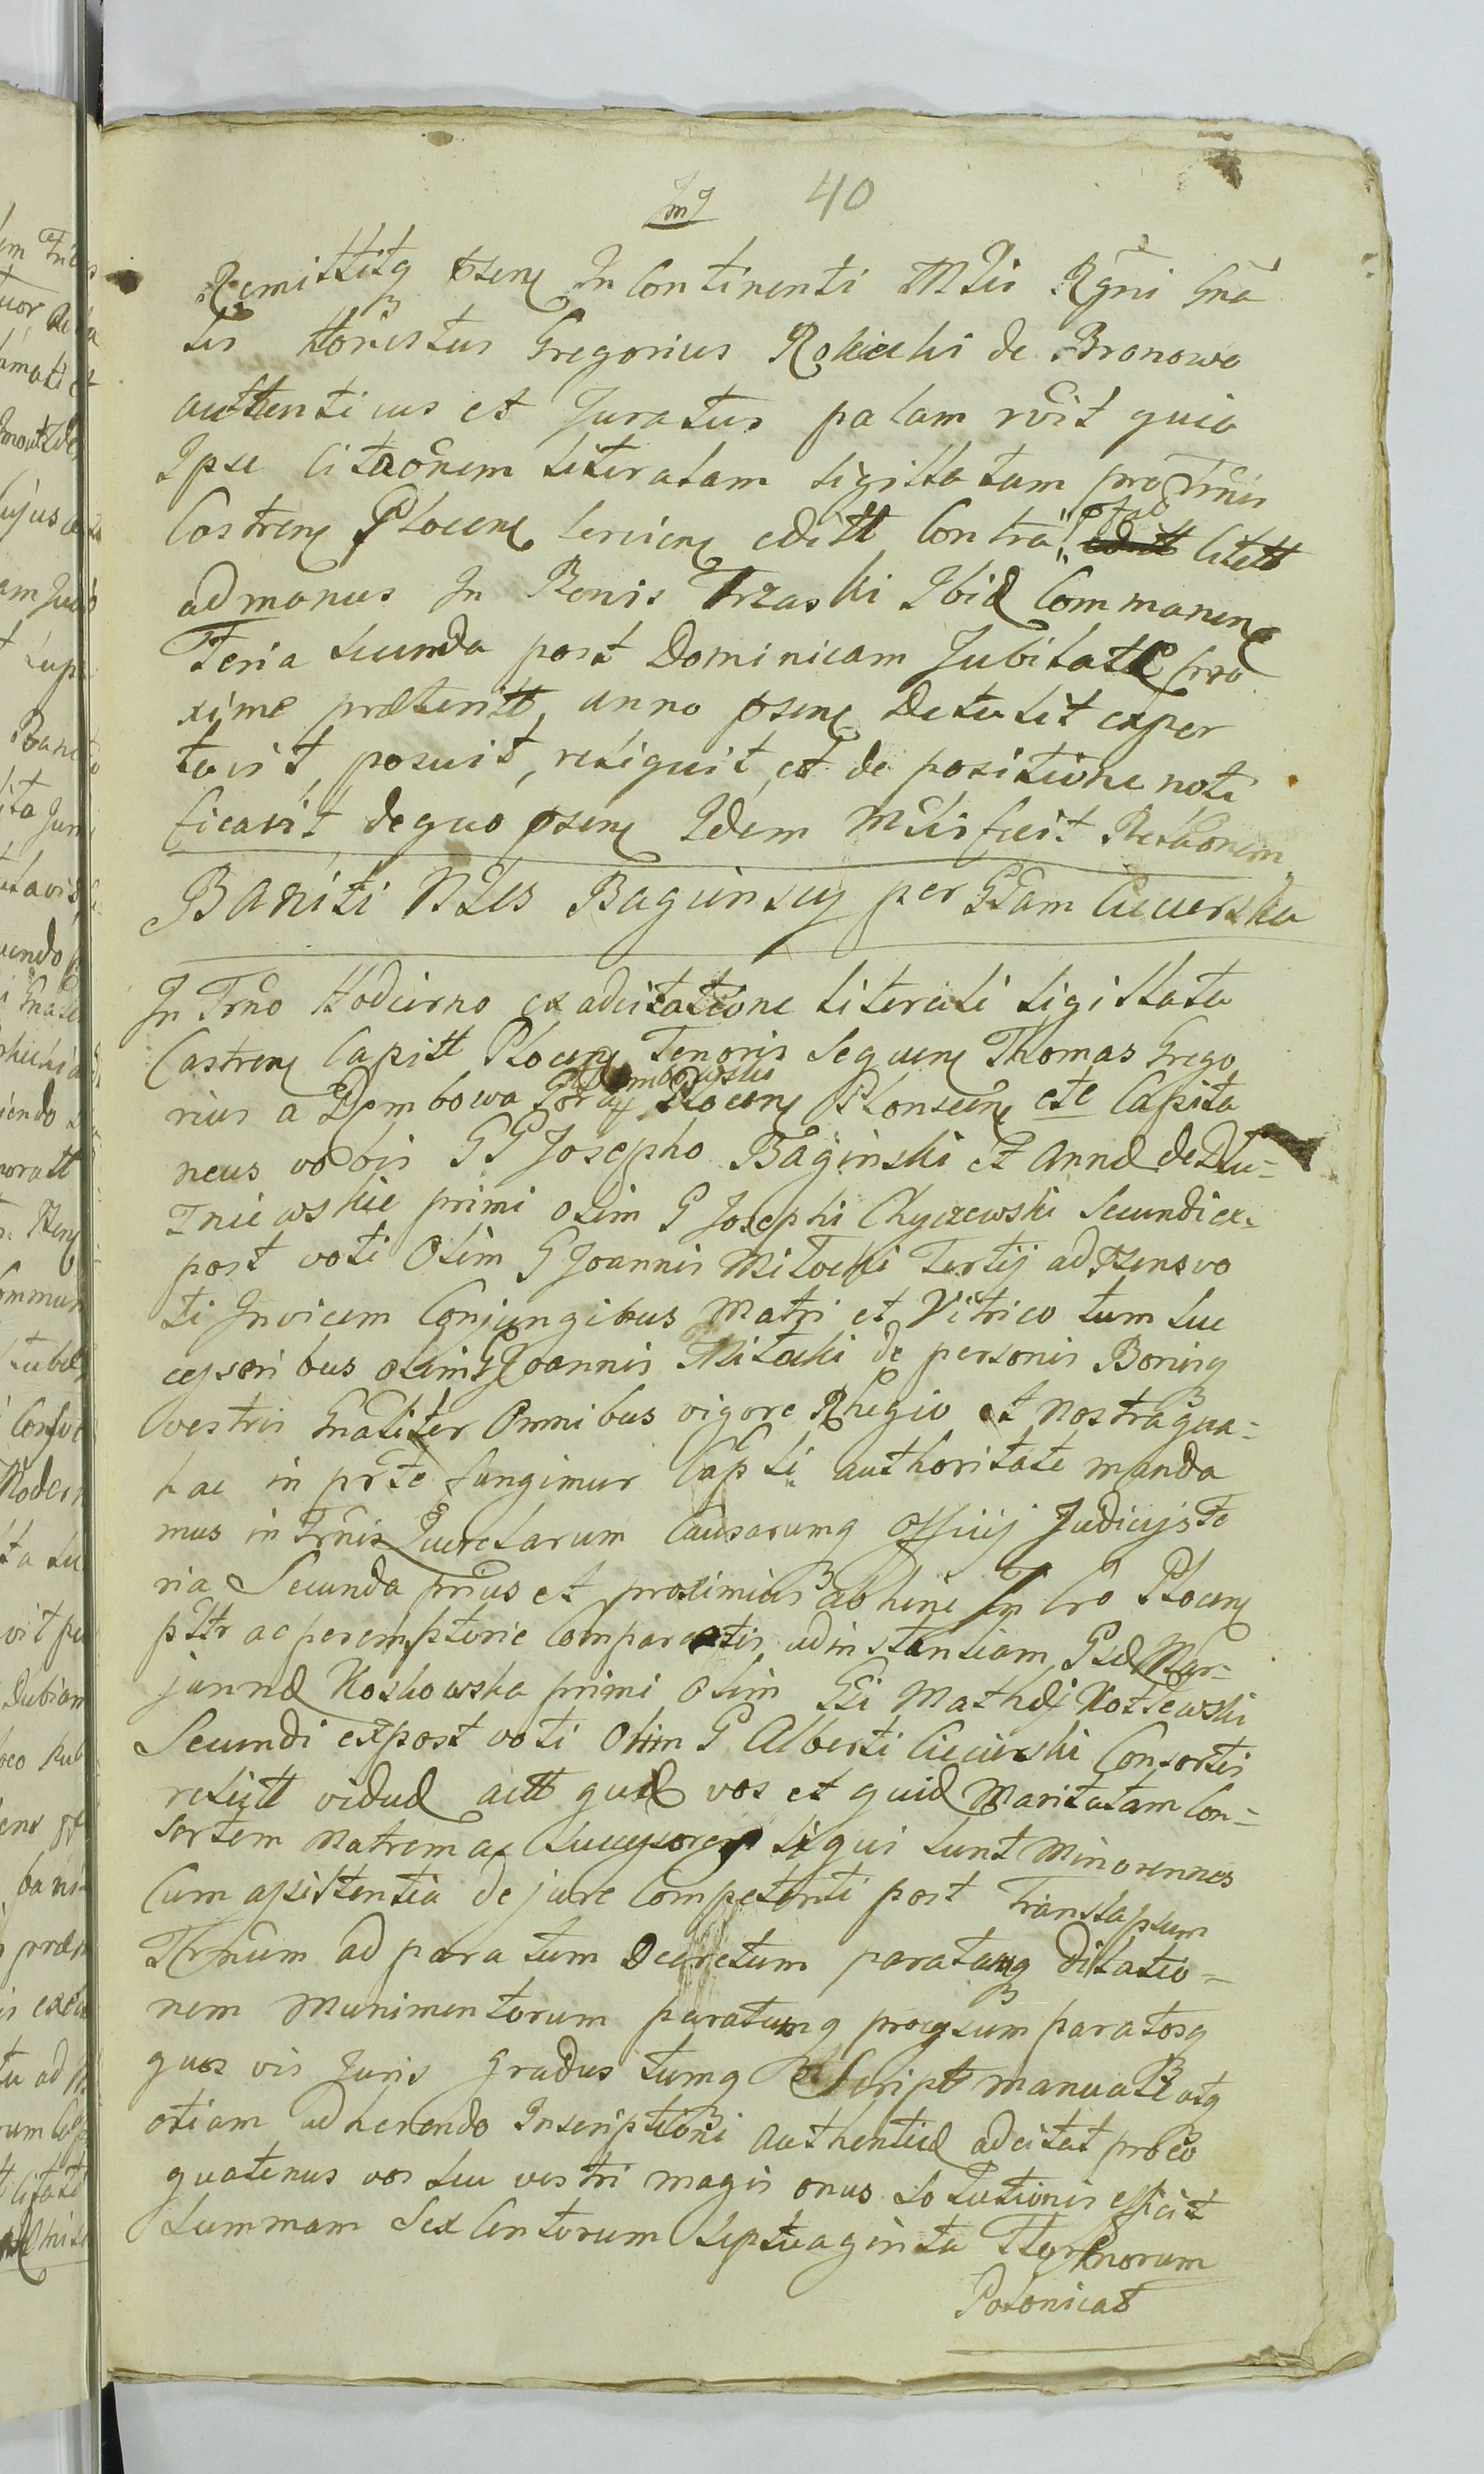 40
Remittitq prsens In Continenti Mtlis Rgni Gna
lis Honestus Gregorius Rokicki de Bronowo
authenticus et Juratus palam rcoit quia
Ipse Citaonem literalem sigillatam pro Trnis
Castrens Plocens serviens editt Contra citatt
ad manus In Bonis Trzaski Ibid Commanens
Feria secunda post Dominicam Jubilate pro
xime præteritt, anno prsens Detulit exper
tavit, posuit, reliquit, et de positione noti
ficavit de quo prsens Idem Mtlis fecit Relaonem
Baniti Nbles Baginscy per Gsam Ciecierska
In Trno Hodierno ex adcitatione literali sigillata
Castrens Capitt Plocens Tenoris Sequens Thomas Grego
rius a Dembowa Gora Dembowski Plocens Plonscens etc Capita
neus vobis GG Josepho Baginski et Annæ de Dłu-
Tniewskie primi olim G Josephi Chyczewski Secundi ex-
post voti Olim G Joannis Milocki Tertij ad prsens vo
ti Invicem Conjungibus Matri et Vitrico tum suc
cessoribus olim G Joannis Milocki de personis Bonisq
vestris Gnaliter Omnibus vigore Rhegio et Nostra qua-
hac in prte fungimur Capli authoritate manda
mus in Trnis Querelarum Causarumq Officij Judicijs Fe
ria Secunda prius et proximius abhinc In Cro Plocens
psttr ac peremptorie Comparcatis ad instantiam Gsæ Mar-
jannæ Koskowska primi Olim Gsi Mathæj Kozłowski
Secundi expost voti Olim G Alberti Ciecierski Consortis
relictt viduæ actt quæ vos et quid Maritatam Con-
sortem Matrem ac Successores siqui sunt Minorennes
Cum assistentia de jure Competenti post Translapsum
Trnum ad paratum Decretum paratamq Dilatio-
nem Munimentorum paratumq processum paratosq
quos vis Juris Gradus tumq Script manuali atq
etiam adherendo Inscriptioni authenticæ adcitat pro eo
quatenus vos seu vestri magis onus solutionis efficit
Summam Sex Centorum Septuaginta Florenorum
Polonical